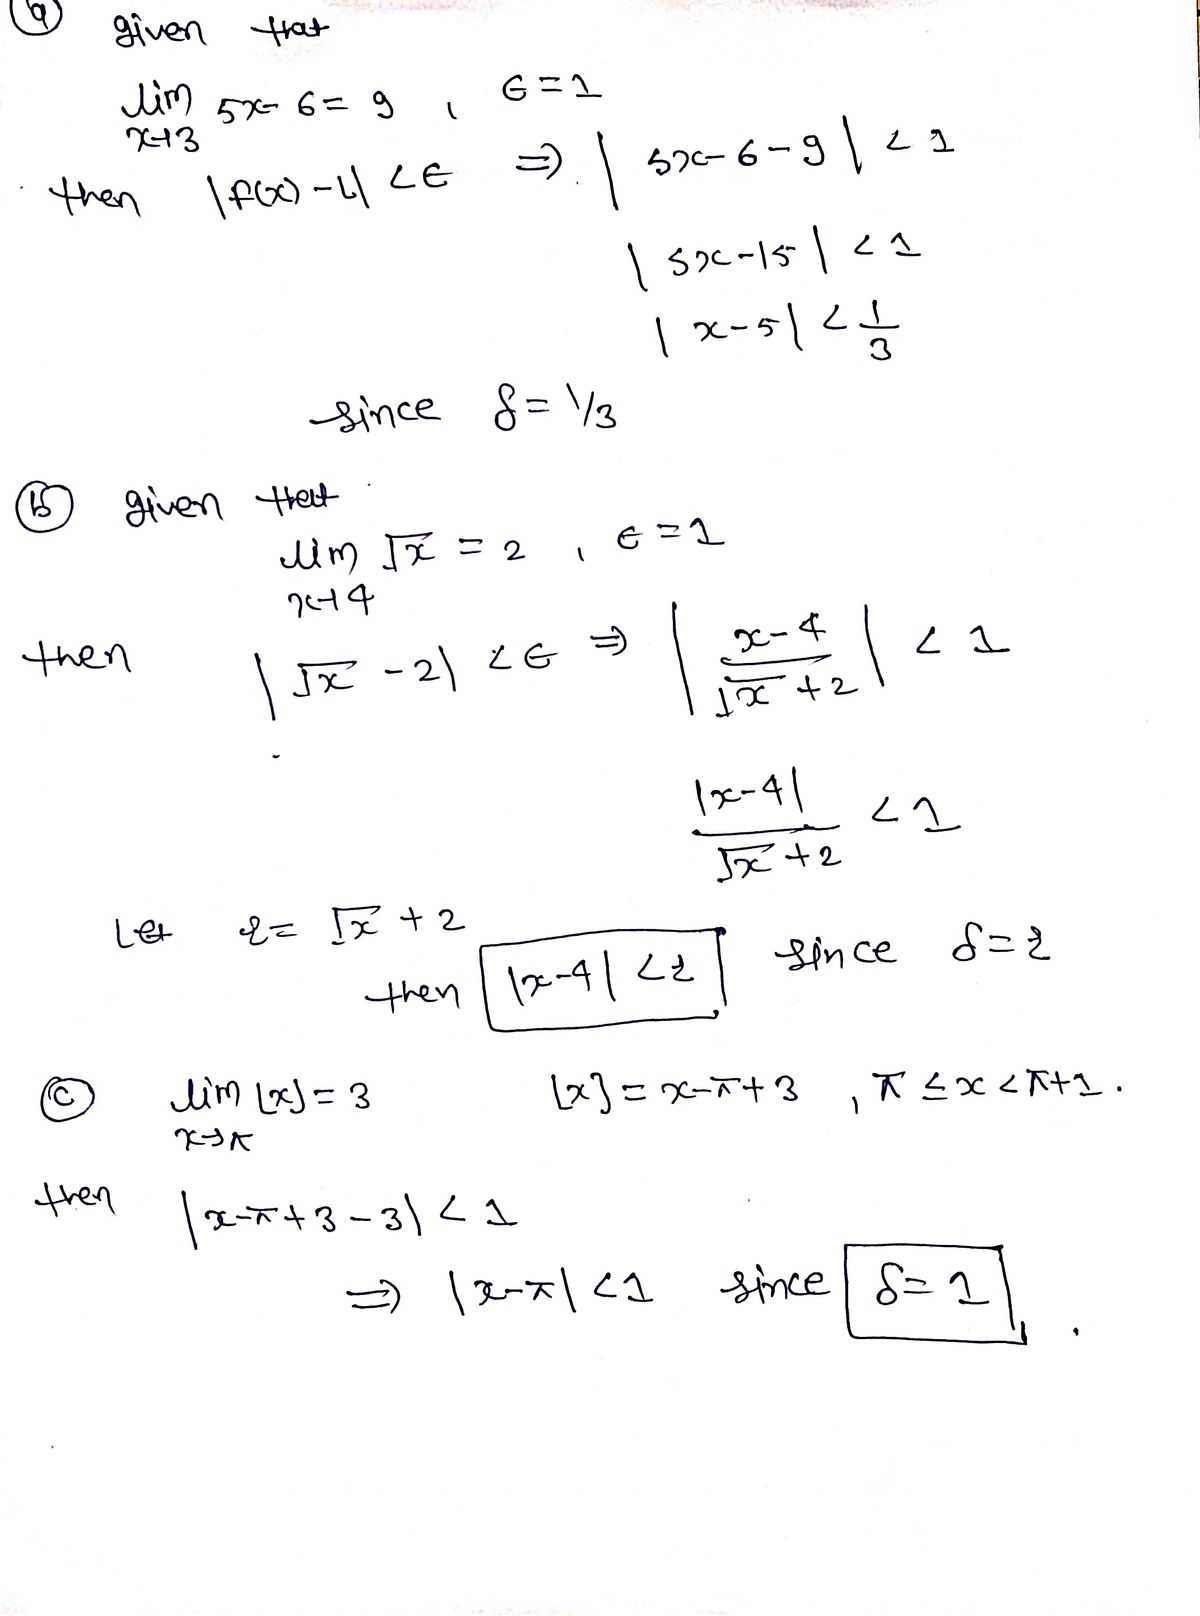 (a) given that
lim 5x- 6 = 9 , ϵ = 1
x→3
then |f(x) - L| < ϵ ⇒ | 5x - 6 - 9 | < 1
| 5x - 15 | < 1
| x - 5 | < 1/3
since δ = 1/3
(b) given that
lim √x = 2 , ϵ = 1
x→4
then | √x - 2 | < ϵ ⇒ | (x - 4)/(√x + 2) | < 1
|x - 4|/(√x + 2) < 1
Let z = √x + 2
then |x - 4| < z since δ = z
(c) lim ⌊x⌋ = 3 ⌊x⌋ = x - π + 3 , π ≤ x < π + 1 .
x→π
then | x - π + 3 - 3 | < 1
⇒ | x - π | < 1 since δ = 1 .